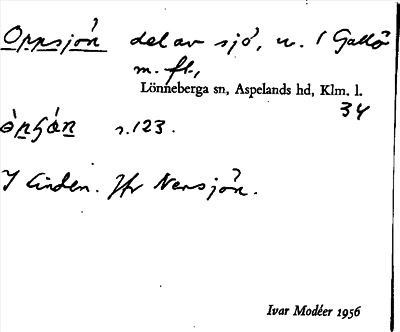 Oppsjön del av sjö, n. 1 Gallö
m. fl.,
Lönneberga sn, Aspelands hd, Klm. l.
34
s. 123.
I Linden. Jfr Nersjön.
Ivar Modéer 1956